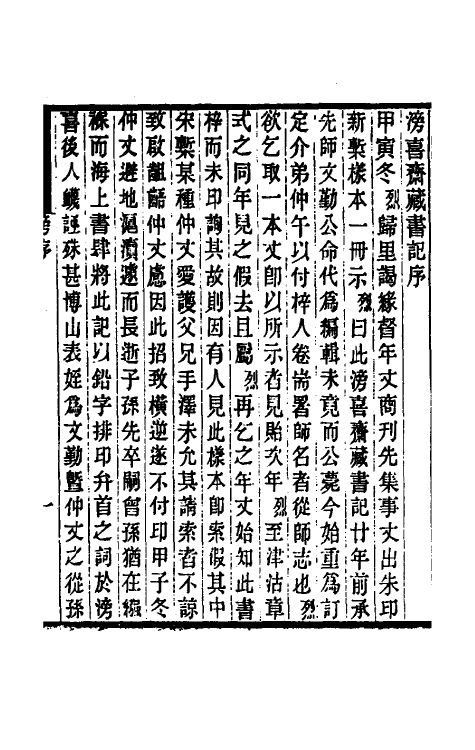 滂喜齋藏書記序
甲寅冬烈歸里謁緣督年丈商刊先集事丈出朱印
新槧樣本一冊示烈曰此滂喜齋藏書記廿年前承
先師文勤公命代為編輯未竟而公薨今始重為訂
定介弟仲午以付梓人卷耑署師名者從師志也烈
欲乞取一本丈卽以所示者見貽次年烈至津沽章
式之同年見之假去且屬烈再乞之年丈始知此書
梓而未印詢其故則因有人見此樣本卽索假其中
宋槧某種仲丈愛護父兄手澤未允其請索者不諒
致啟齟齬仲丈慮因此招致橫逆遂不付印甲子冬
仲丈避地滬瀆遽而長逝子孫先卒嗣曾孫猶在繈
緥而海上書肆將此記以鉛字排印弁首之詞於滂
喜後人譏誣殊甚博山表姪為文勤暨仲丈之從孫
滂序
一